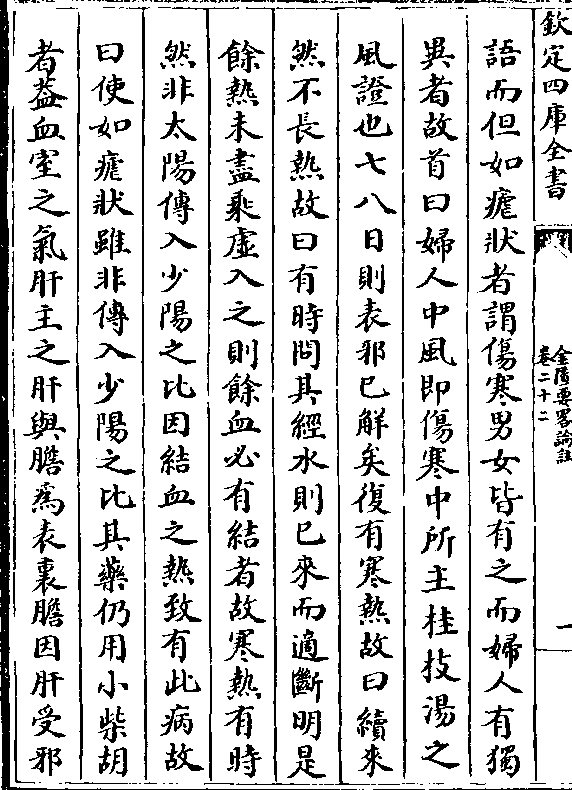 欽定四庫全書
金匱要畧論註
卷二十二
一
語而但如瘧狀者謂傷寒男女皆有之而婦人有獨
異者故首曰婦人中風即傷寒中所主桂枝湯之
風證也七八日則表邪已解矣復有寒熱故曰續來
然不長熱故曰有時問其經水則已來而適斷明是
餘熱未盡乘虛入之則餘血必有結者故寒熱有時
然非太陽傳入少陽之比因結血之熱致有此病故
曰使如瘧狀雖非傳入少陽之比其藥仍用小柴胡
者葢血室之氣肝主之肝與膽為表裏膽因肝受邪